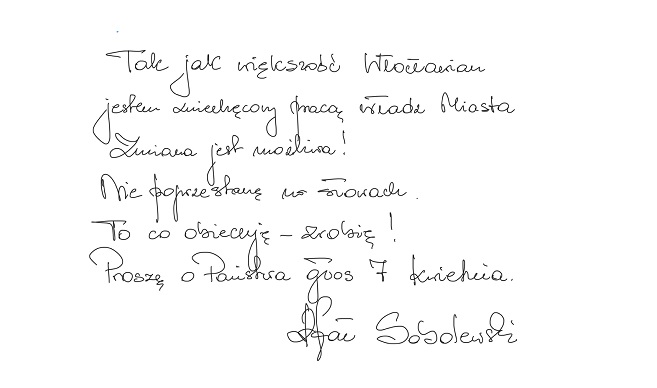 Tak jak większość Włocławian
jestem zniechęcony pracą władz Miasta
Zmiana jest możliwa!
Nie poprzestanę na słowach.
To co obiecuję – zrobię!
Proszę o Państwa głos 7 kwietnia.
Rafał Sobolewski